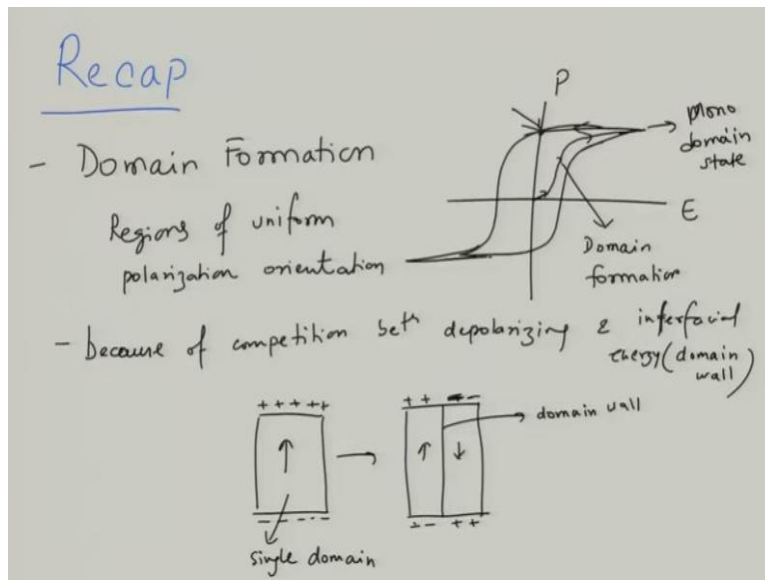 Recap
- Domain Formation
Regions of uniform
polarization orientation
P
E
Mono
domain
state
Domain
formation
- because of competition betn depolarizing & interfacial
energy (domain
wall)
+ + + + +
- - - - -
single domain
+ + - -
- - + +
domain wall